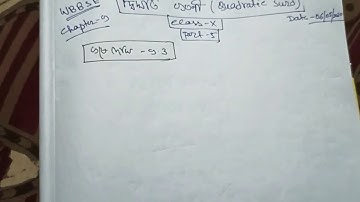 WBBSE
Chapter-9
দ্বিঘাত করণী (Quadratic Surd)
Class-X
Part-5
কষে দেখি - 9.3